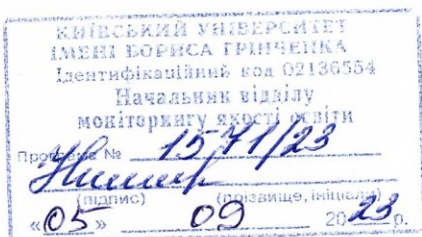 КИЇВСЬКИЙ УНІВЕРСИТЕТ
ІМЕНІ БОРИСА ГРІНЧЕНКА
Ідентифікаційний код 02136554
Начальник відділу
моніторингу якості освіти
Програма № 1571/23
(підпис) (прізвище, ініціали)
«05» 09 2023 р.